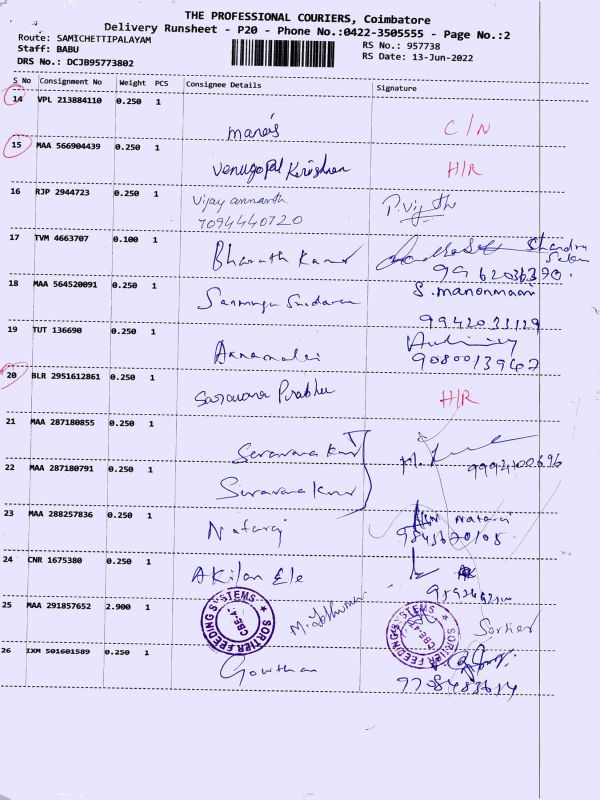 THE PROFESSIONAL COURIERS, Coimbatore
Delivery Runsheet - P20 - Phone No.:0422-3505555 - Page No.:2
Route: SAMICHETTIPALAYAM
Staff: BABU
DRS No.: DCJB95773802
RS No.: 957738
RS Date: 13-Jun-2022
S No Consignment No Weight PCS Consignee Details Signature
14 VPL 213884110 0.250 1
C/N
15 MAA 566904439 0.250 1
Venugopal Krishnan H/R
16 RJP 2944723 0.250 1
Vijay
7094440720
17 TVM 4663707 0.100 1
Bharath Kumar
Chandra
18 MAA 564520091 0.250 1
S. manonmani
19 TUT 136690 0.250 1
Annamalai
20 BLR 2951612861 0.250 1
Saravana Prabhu H/R
21 MAA 287180855 0.250 1
22 MAA 287180791 0.250 1
23 MAA 288257836 0.250 1
Nataraj Nataraj
24 CNR 1675380 0.250 1
Akilan Ele
25 MAA 291857652 2.900 1
SORTIER FEEDING SYSTEMS
CBE-41
SORTIER FEEDING SYSTEMS
CBE-41
Sortier
26 IXM 501601589 0.250 1
Gowtham